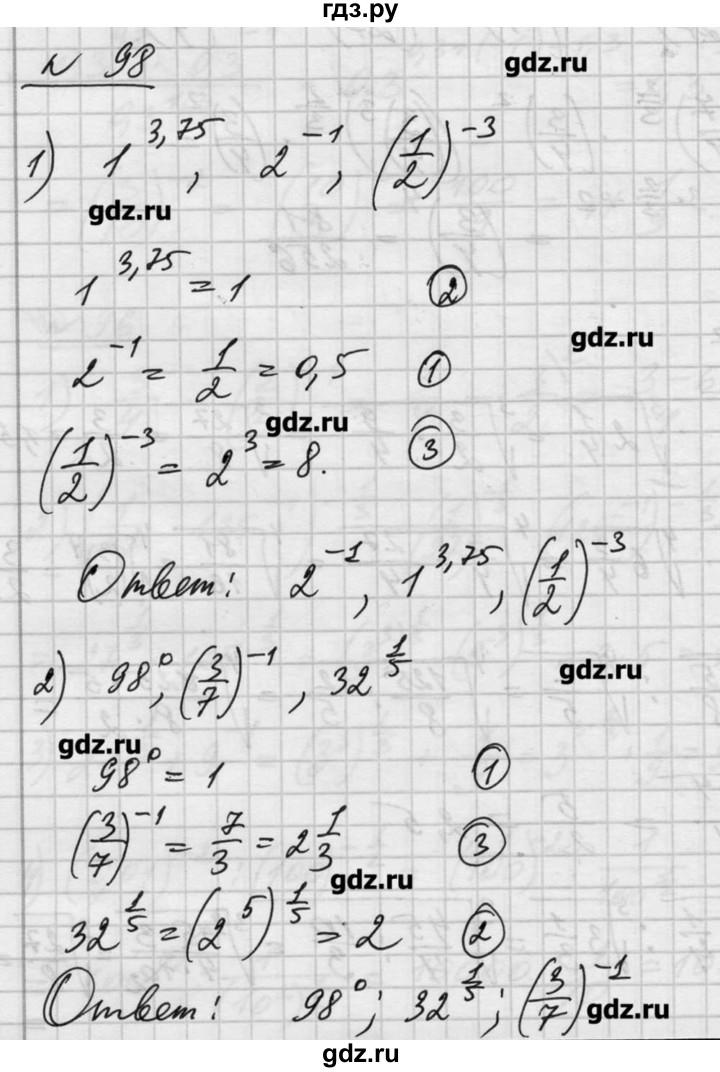 гдз.ру
N 98
gdz.ru
1) 1^3,75, 2^-1, (1/2)^-3
gdz.ru
1^3,75 = 1 ②
gdz.ru
2^-1 = 1/2 = 0,5 ①
gdz.ru
(1/2)^-3 = 2^3 = 8. ③
Ответ: 2^-1, 1^3,75, (1/2)^-3
2) 98^0, (3/7)^-1, 32^1/5
gdz.ru
gdz.ru
98^0 = 1 ①
(3/7)^-1 = 7/3 = 2 1/3 ③
gdz.ru
32^1/5 = (2^5)^1/5 = 2 ②
Ответ: 98^0; 32^1/5; (3/7)^-1
gdz.ru
gdz.ru